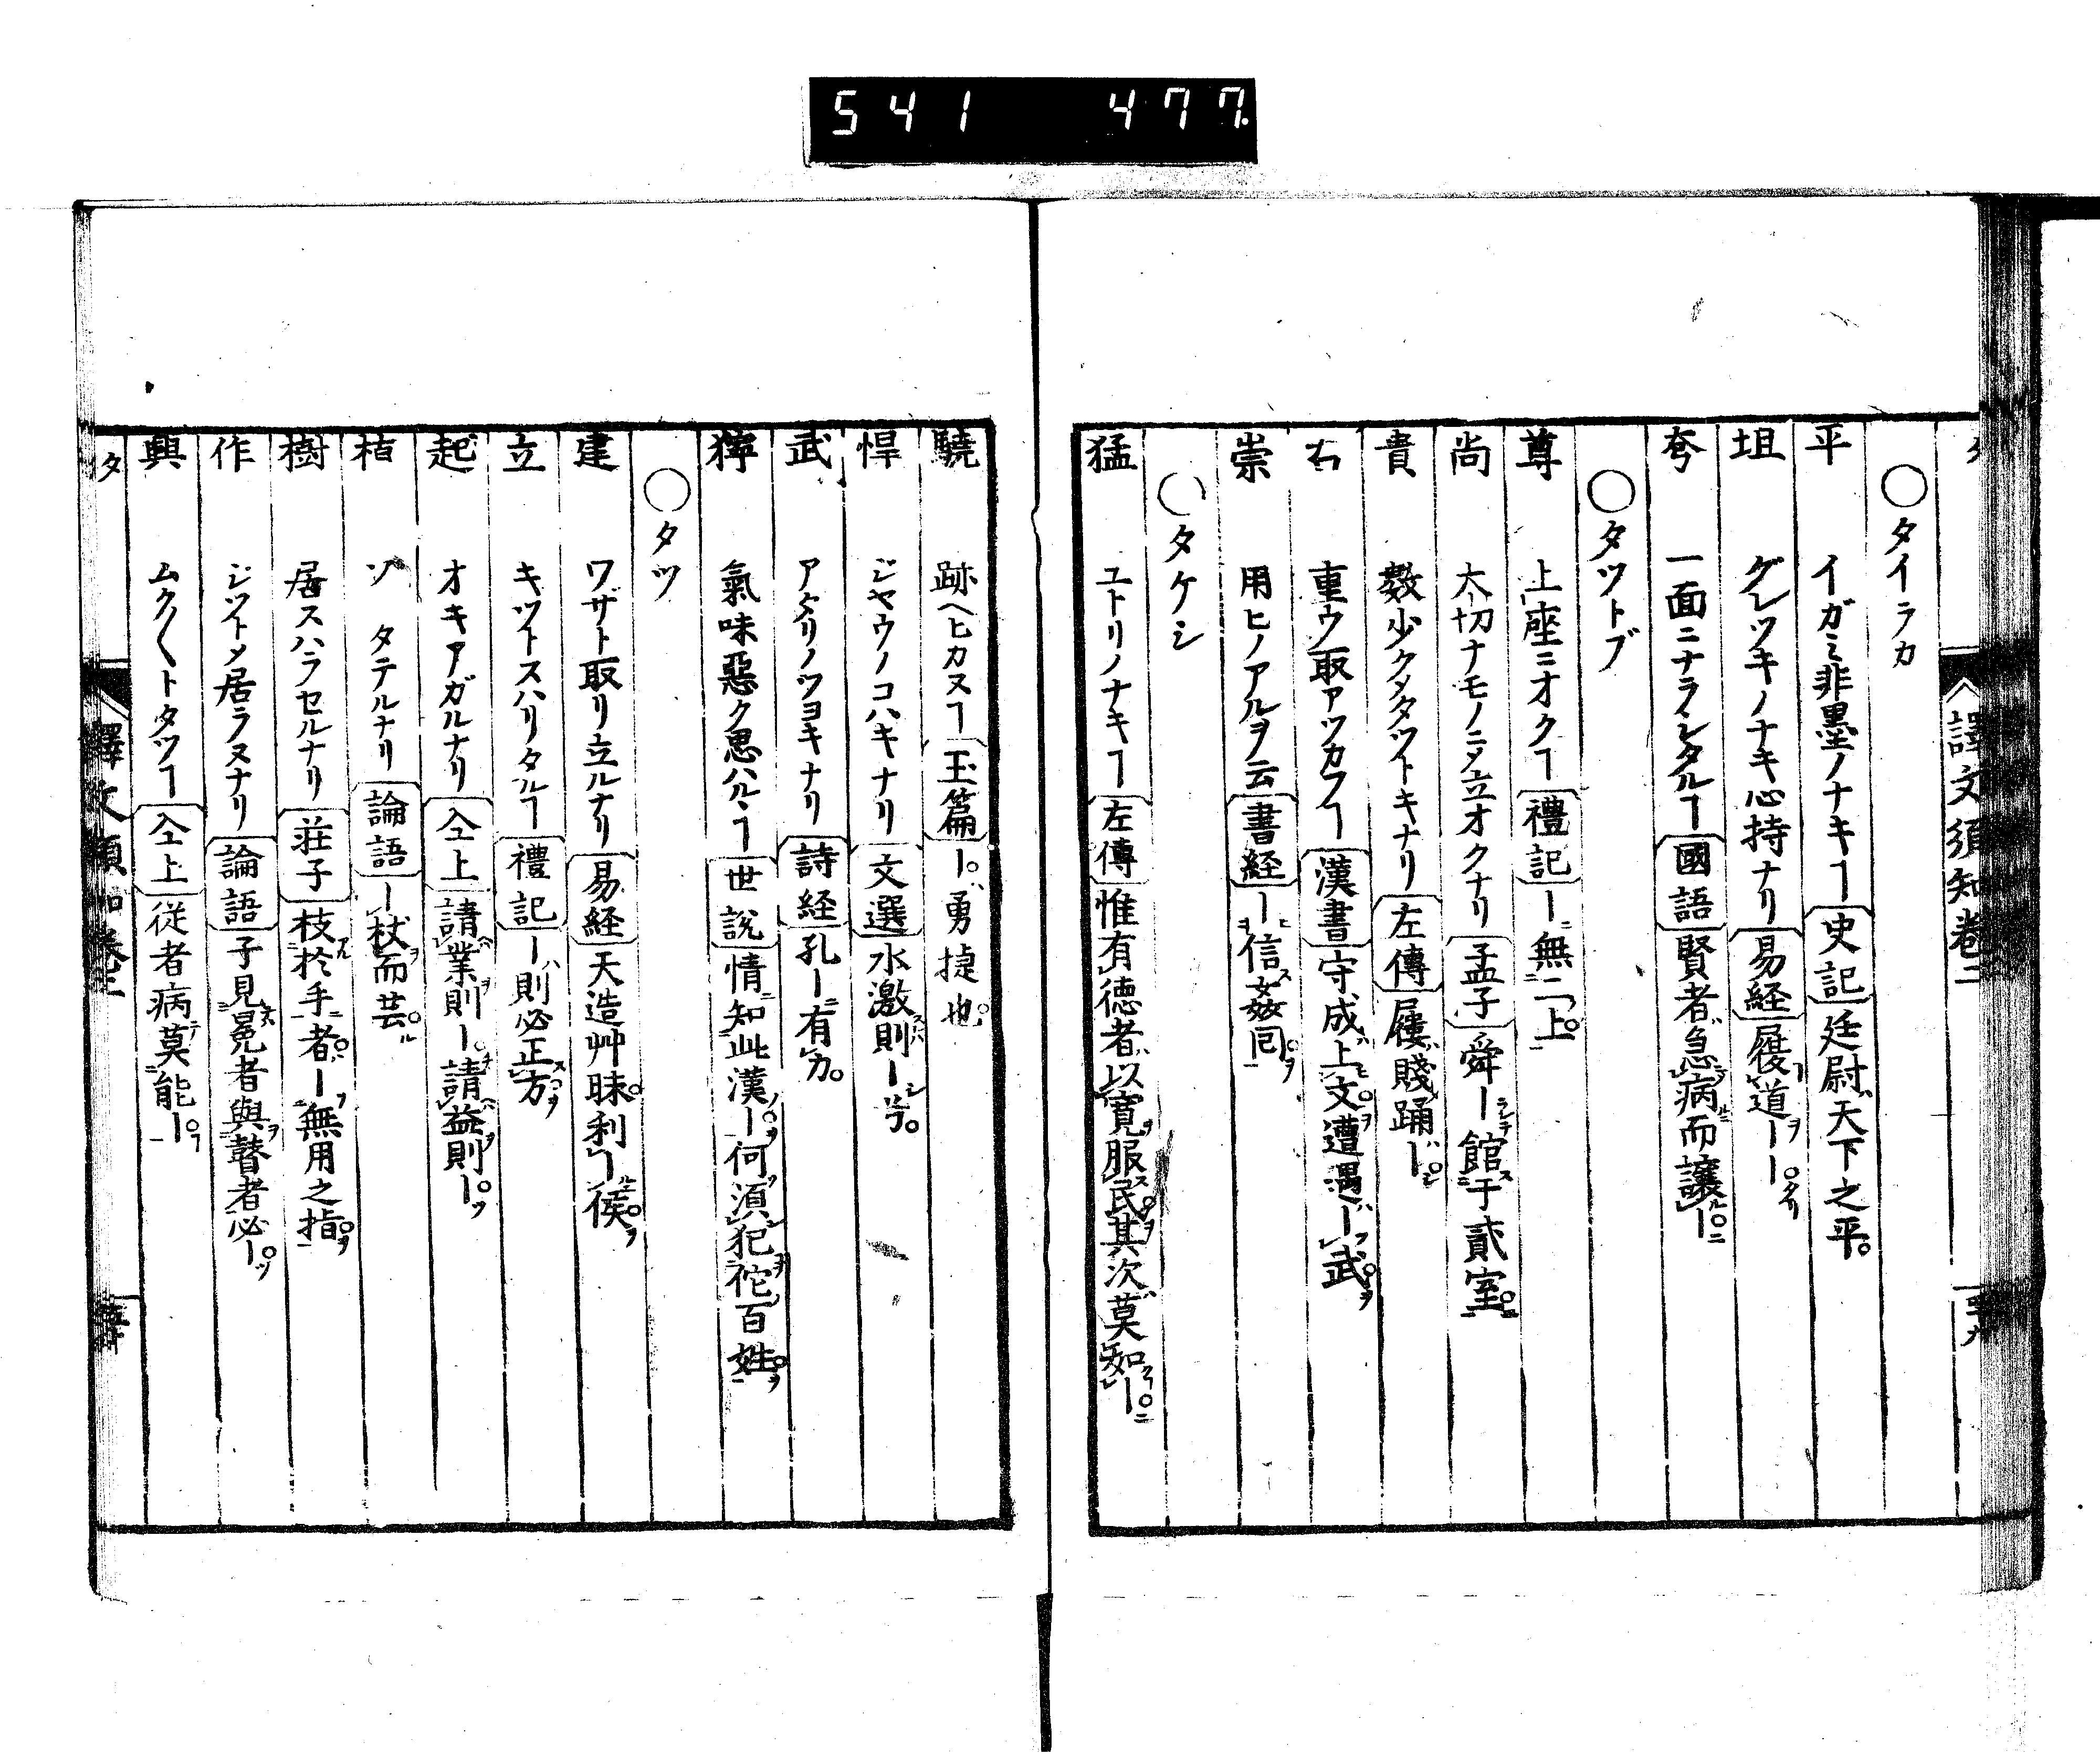 541 477.
譯文須知卷二
四十九
○タイラカ
平 イガミ非墨ノナキヿ 史記 廷尉天下之平
坦 グレツキノナキ心持ナリ 易経 履道ーー
夸 一面ニナラシタルヿ 國語 賢者急病而讓ー
○タツトブ
尊 上座ニオクヿ 禮記 ー無二上
尚 大切ナモノニメ立オクナリ 孟子 舜ー館于貳室
貴 數少クメタツトキナリ 左傳 屨賤踊ー
右 重ウ取アツカフヿ 漢書 守成上文遭遇ー武
崇 用ヒノアルヲ云 書経 ー信姦回
○タケシ
猛 ユトリノナキヿ 左傳 惟有徳者以寛服民其次莫如ー
驍 跡ヘヒカヌヿ 玉篇 ー勇捷也
悍 ジヤウノコハキナリ 文選 水激則ー兮
武 アタリノツヨキナリ 詩経 孔ー有力
獰 氣味惡ク思ハルヽヿ 世説 情知此漢ー何須犯佗百姓
○タツ
建 ワザト取リ立ルナリ 易経 天造艸昧利ー侯
立 キツトスハリタルヿ 禮記 ー則必正方
起 オキアガルナリ 仝上 請業則ー請益則ー
植 ソ タテルナリ 論語 ー杖而芸
樹 居スハラセルナリ 荘子 枝於手者ー無用之指
作 ジツトメ居ラヌナリ 論語 子見冕者與瞽者必ー
興 ムク〱トタツヿ 仝上 従者病莫能ー
タ 譯文須知卷二